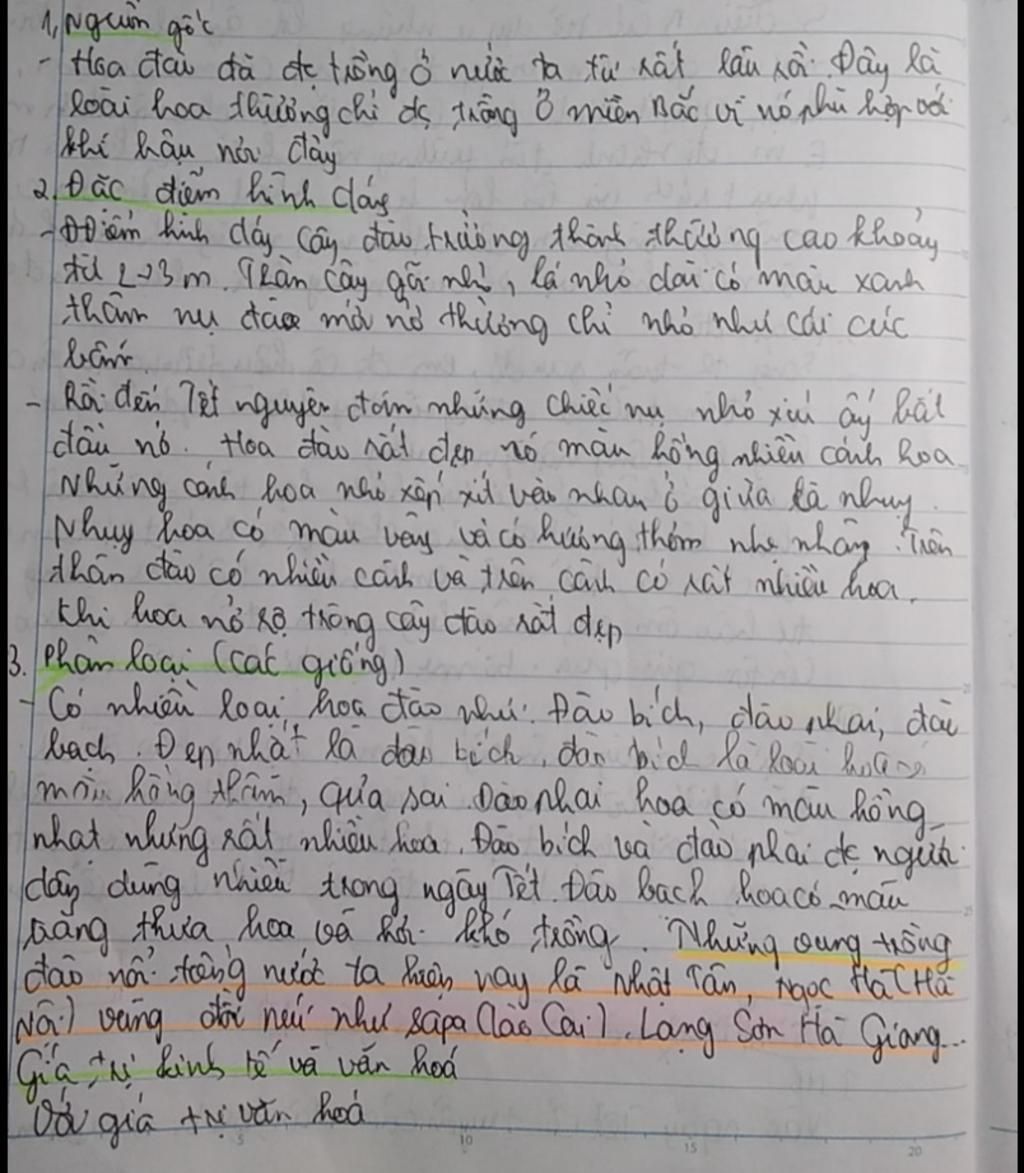 1, Nguồn gốc
- Hoa đào đã đc trồng ở nước ta từ rất lâu rồi. Đây là
loài hoa thường chỉ đc trồng ở miền Bắc vì nó phù hợp với
khí hậu nơi đây
2, Đặc điểm hình dáng
- Điểm hình dáng cây đào trưởng thành thường cao khoảng
từ 2->3m. Thân cây gỗ nhỏ, lá nhỏ dài có màu xanh
thẫm nụ đào mới nở thường chỉ nhỏ như cái cúc
bấm.
- Rồi đến Tết nguyên đán những chiếc nụ nhỏ xíu ấy bắt
đầu nở. Hoa đào rất đẹp nó màu hồng nhiều cánh hoa.
Những cánh hoa nhỏ xếp xít vào nhau ở giữa là nhuỵ.
Nhuỵ hoa có màu vàng và có hương thơm nhẹ nhàng. Trên
thân đào có nhiều cành và trên cành có rất nhiều hoa.
Khi hoa nở rộ trông cây đào rất đẹp
3. Phân loại (các giống)
- Có nhiều loại hoa đào như: Đào bích, đào phai, đào
bạch. Đẹp nhất là đào bích, đào bích là loài hoa có
màu hồng thẫm, quả sai. Đào phai hoa có màu hồng
nhạt nhưng rất nhiều hoa. Đào bích và đào phai đc người
dân dùng nhiều trong ngày Tết. Đào bạch hoa có màu
trắng thưa hoa và hơi khó trồng. Những vùng trồng
đào nổi tiếng nước ta hiện nay là Nhật Tân, Ngọc Hà (Hà
Nội) vùng đồi núi như sapa (Lào Cai). Lạng Sơn Hà Giang...
Giá trị kinh tế và văn hoá
Với giá trị văn hoá